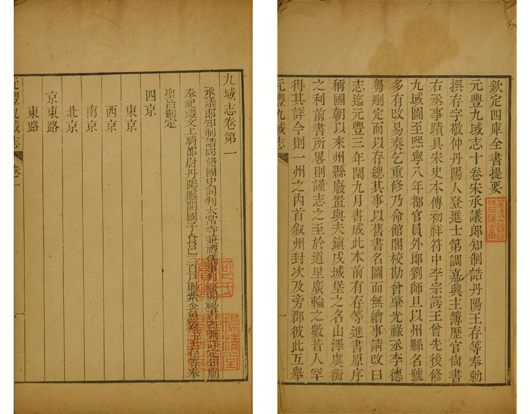 欽定四庫全書提要
元豐九域志十卷宋承議郎知制誥丹陽王存等奉勅
撰存字敬仲丹陽人登進士第調嘉興主簿歷官尚書
右丞事蹟具宋史本傳初祥符中李宗諤王曾先後修
九域圖至熙寧八年都官員外郎劉師旦以州縣名號
多有改易奏乞重修乃命館閣校勘曾肇光祿丞李德
芻刪定而以存總其事以舊書名圖而無繪事請改曰
志迄元豐三年閏九月書成此本前有存等進書原序
稱國朝以來州縣廢置與夫鎮戍城堡之名山澤虞衡
之利前書所略則謹志之至於道里廣輪之數昔人罕
得其詳今則一州之內首叙州封次及旁郡彼此互舉
元豐九域志
九域志卷第一
承議郎知制誥同修國史
聖旨刪定
四京
東京
西京
南京
北京
京東路
東路
元豐九域志 卷一